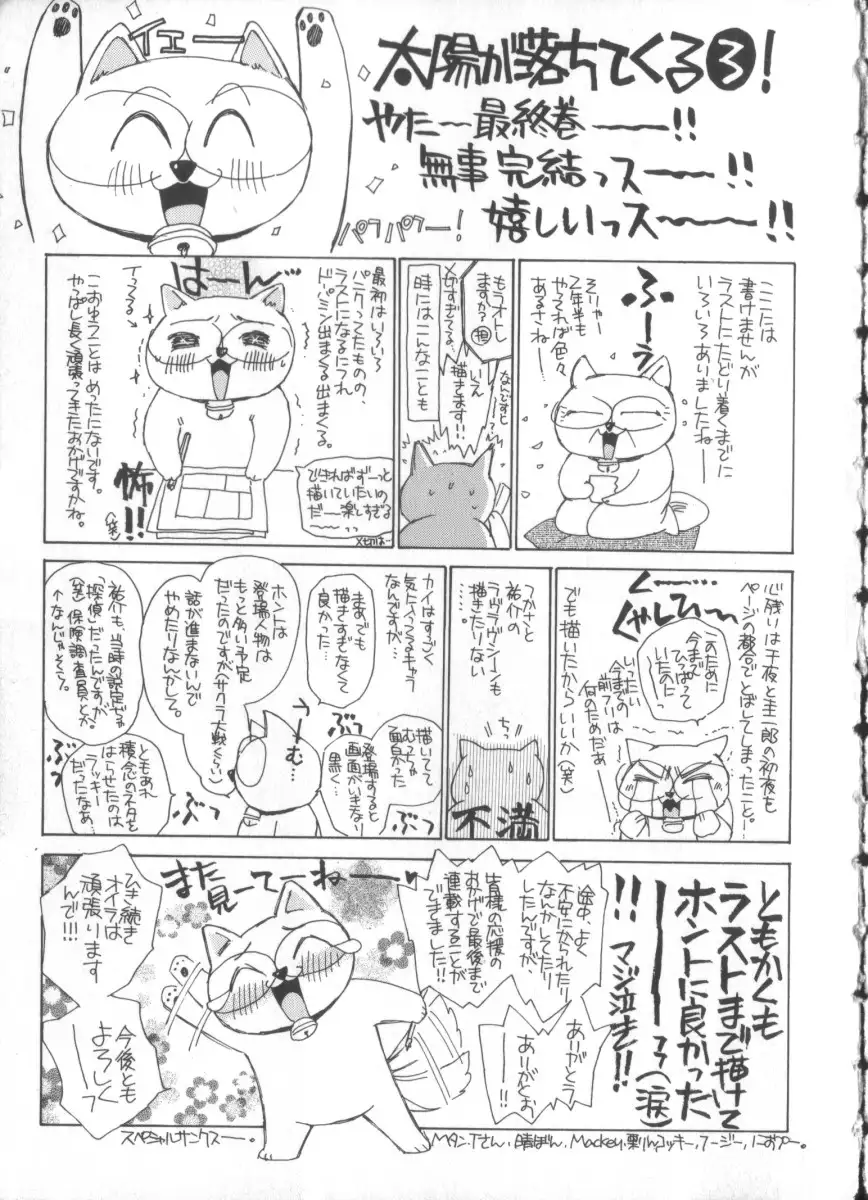 イエー
太陽が落ちてくる③！
やたー最終巻ー!!
無事完結っスー!!
嬉しいっスー!!
パフパフー！
ここには
書けませんが
ラストにたどり着くまでに
いろいろありましたねー
ふーぅ
そりゃー
2年半も
やれば色々
あるさねー
時にはこんなことも
もうオトし
ますか？
担
〆切すぎてる…
なんですとー？
いえ
描きます!!
最初はいろいろ
パニクってたものの、
ラストになるにつれ
ドーパミン出まくる出まくる。
はーん♡
イってる→
こおゆうことはめったにないです。
やっぱし長く頑張ってきたおかげですかね。
（笑）
怖!!
できればずーっと
描いていたいの
だーー楽しすぎるっっ
〆切は…
心残りは千夜と圭一郎の初夜も
ページの都合でとばしてしまったことー！
くーー
くやしひーー
このために
今まで
ひっぱって
いたのにっ
いったい
今までの
前フリは
何のためだぁ
でも描いたからいいか（笑）
つかさと
祐介の
ラヴラヴシーンも
描きたりない
……。
ちっ
不満
カイはすごく
気に入ってるキャラ
なんですが…
描いてて
むっちゃ
面白かった
登場すると
画面がいきなり
黒く…
まあでも
描きすぎなくて
良かった…
ホントは
登場人物は
もっと多い予定
だったのですが（サクラ大戦ぐらい）
話が進まないんで
やめたりなんかして。
うーむ…
ぶっ
ぶっ
祐介も、当時の設定じゃ
「探偵」だったんですが
（笑）保険調査員とか。
↑なんじゃそら。
ともあれ
積念のネタを
はらせたのは
ラッキー
だったなぁ…
ぶっ
ぶっ
ともかくも
ラストまで描けて
ホントに良かった
ーーっっ（涙）
!!マジ泣き!!
途中、よく
不安にかられたり
なんかしてたり
したんですが、
皆様の応援の
おかげで最後まで
連載することが
できました!!
ありがとう
ーー！
ありがとお
ーー！
また
見ーてーねーー♥
ひき続き
オイラは
頑張ります
んで!!!
今後とも
よろしく
ーーっ
スペシャルサンクスー。
Mタン、Tさん、晴ぼん、Mackey、栗りん、コッキー、フージー、におぷー。